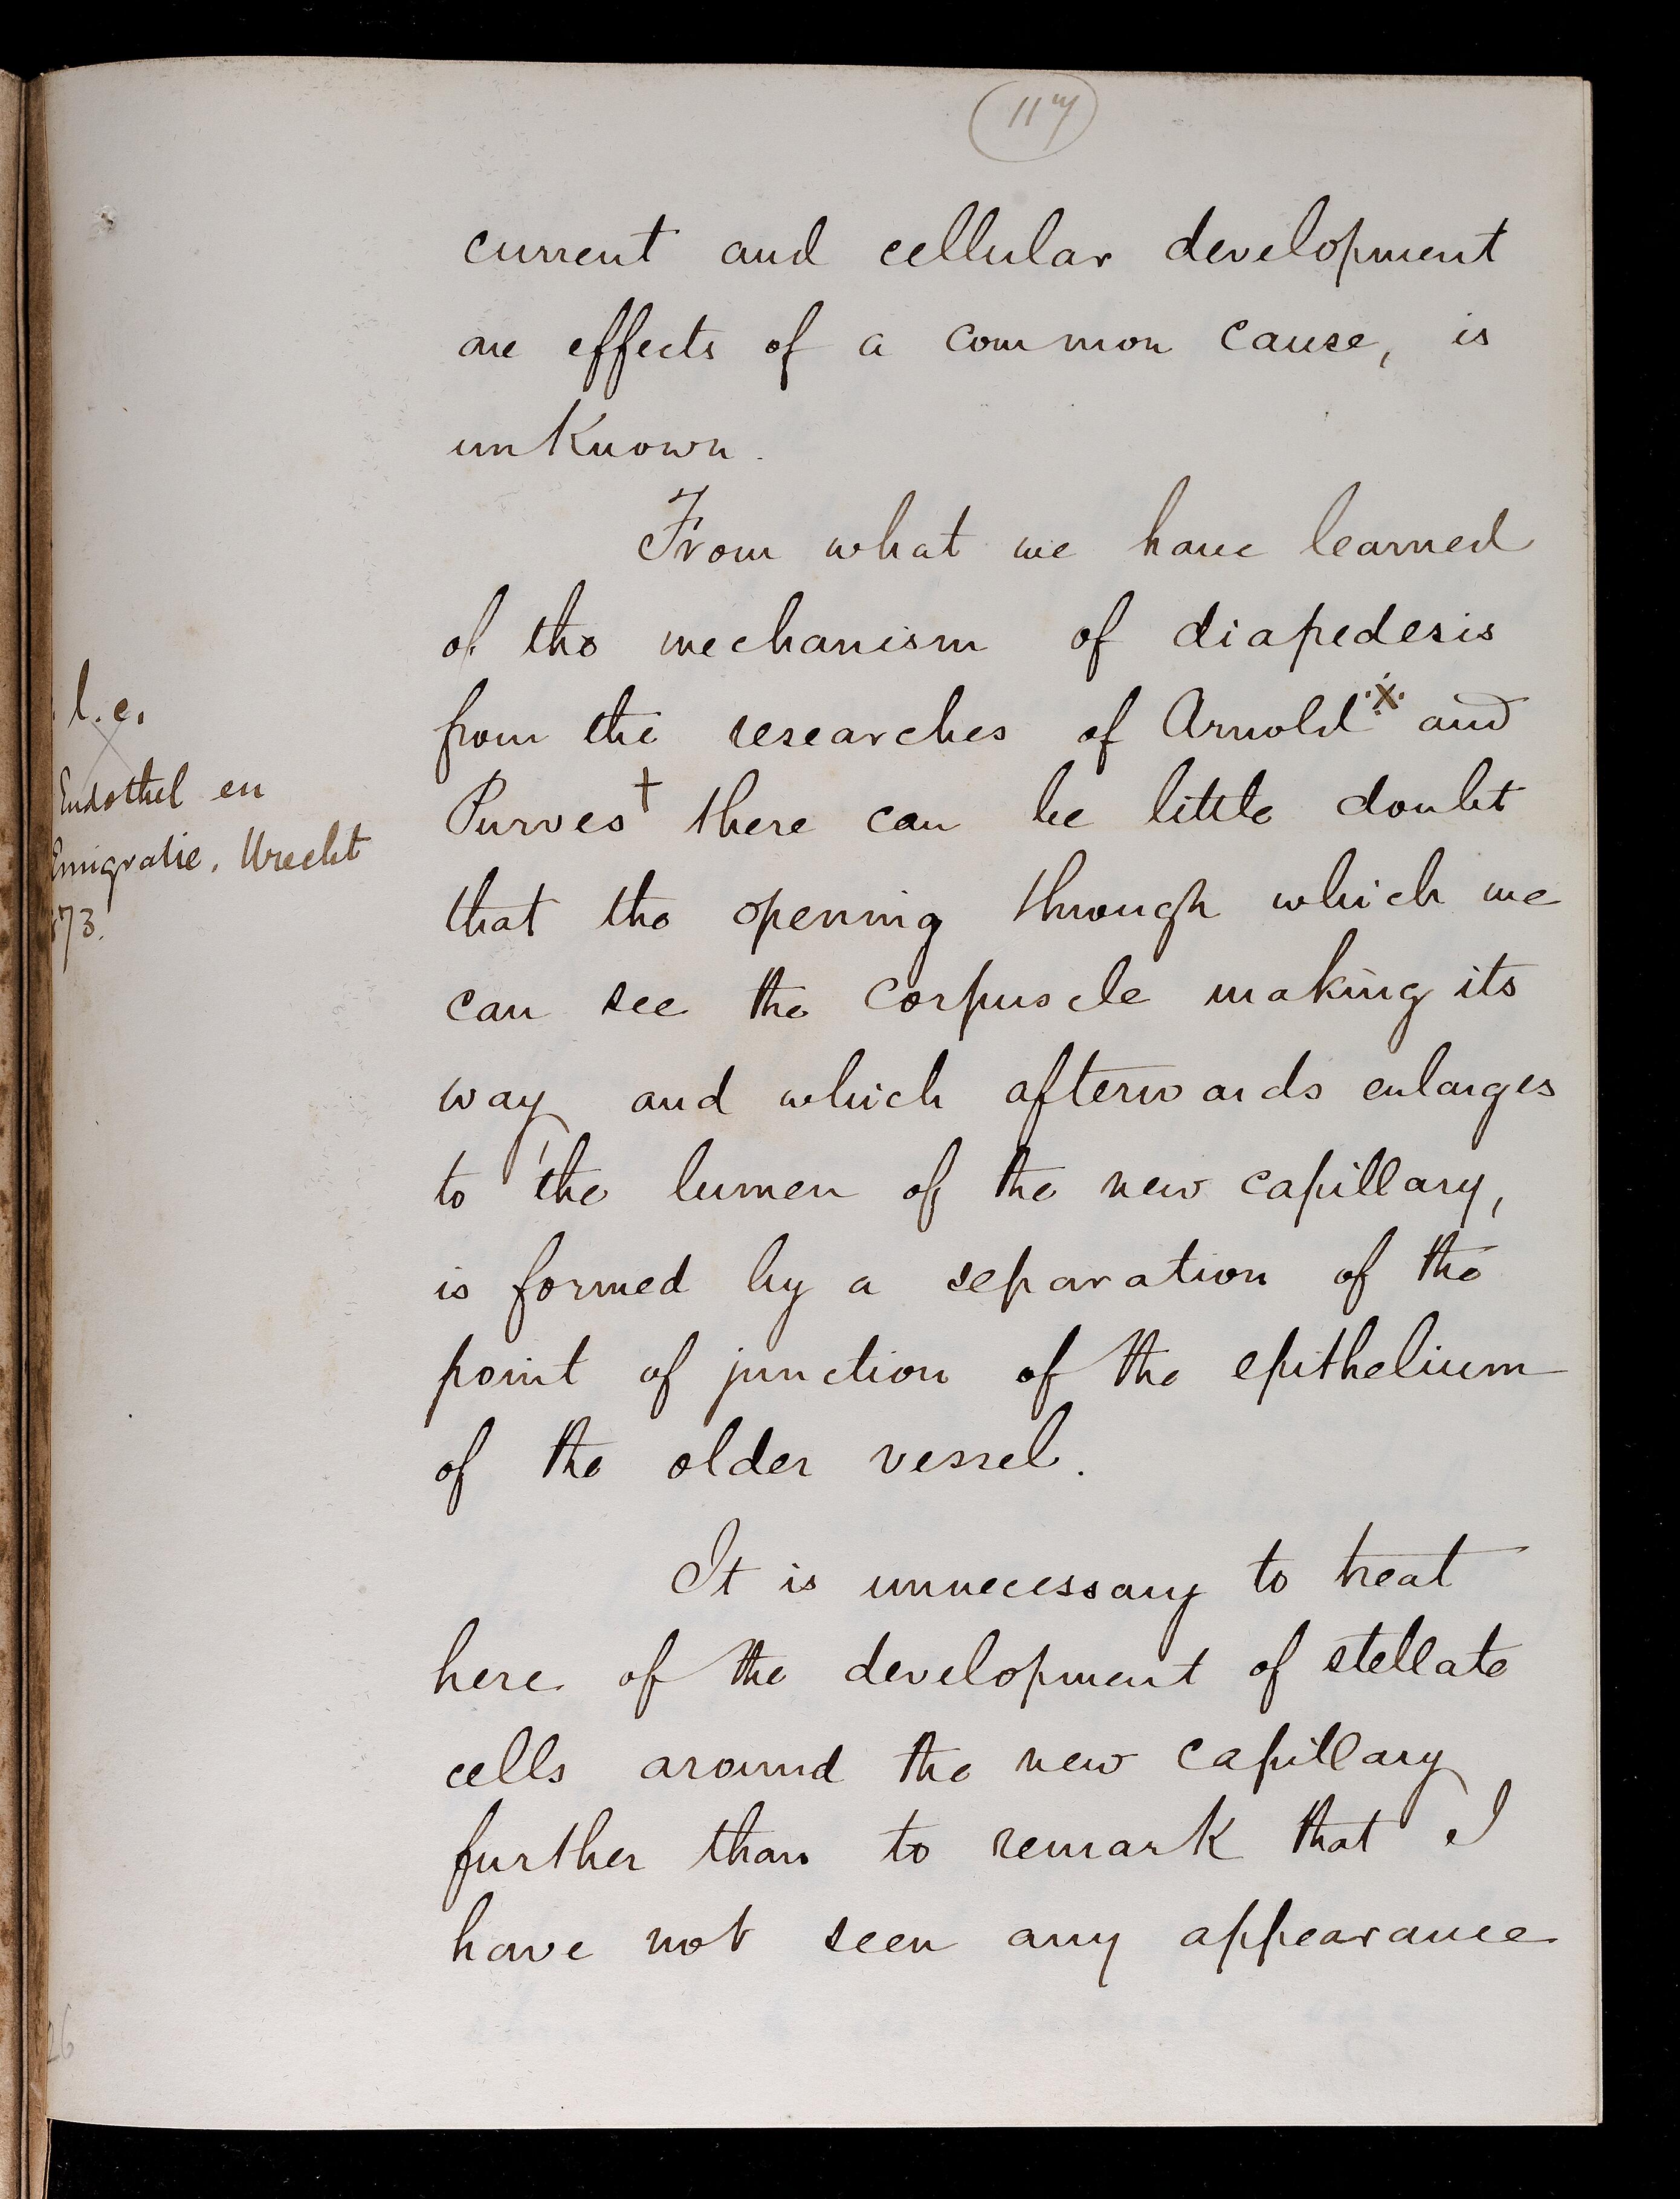 117
current and cellular development
are effects of a common cause, is
unKnown.
From what we have learned
of the mechanism of diapedesis
from the researches of Arnold※ and
Purves† there can be little doubt
that the opening through which we
can see the corpuscle making its
way and which afterwards enlarges
to the lumen of the new capillary,
is formed by a separation of the
point of junction of the epithelium
of the older vessel.
It is unnecessary to treat
here of the development of stellate
cells around the new capillary
further than to remark that I
have not seen any appearance
l.c.
Endothel en
Emigratie. Utrecht
873.
26